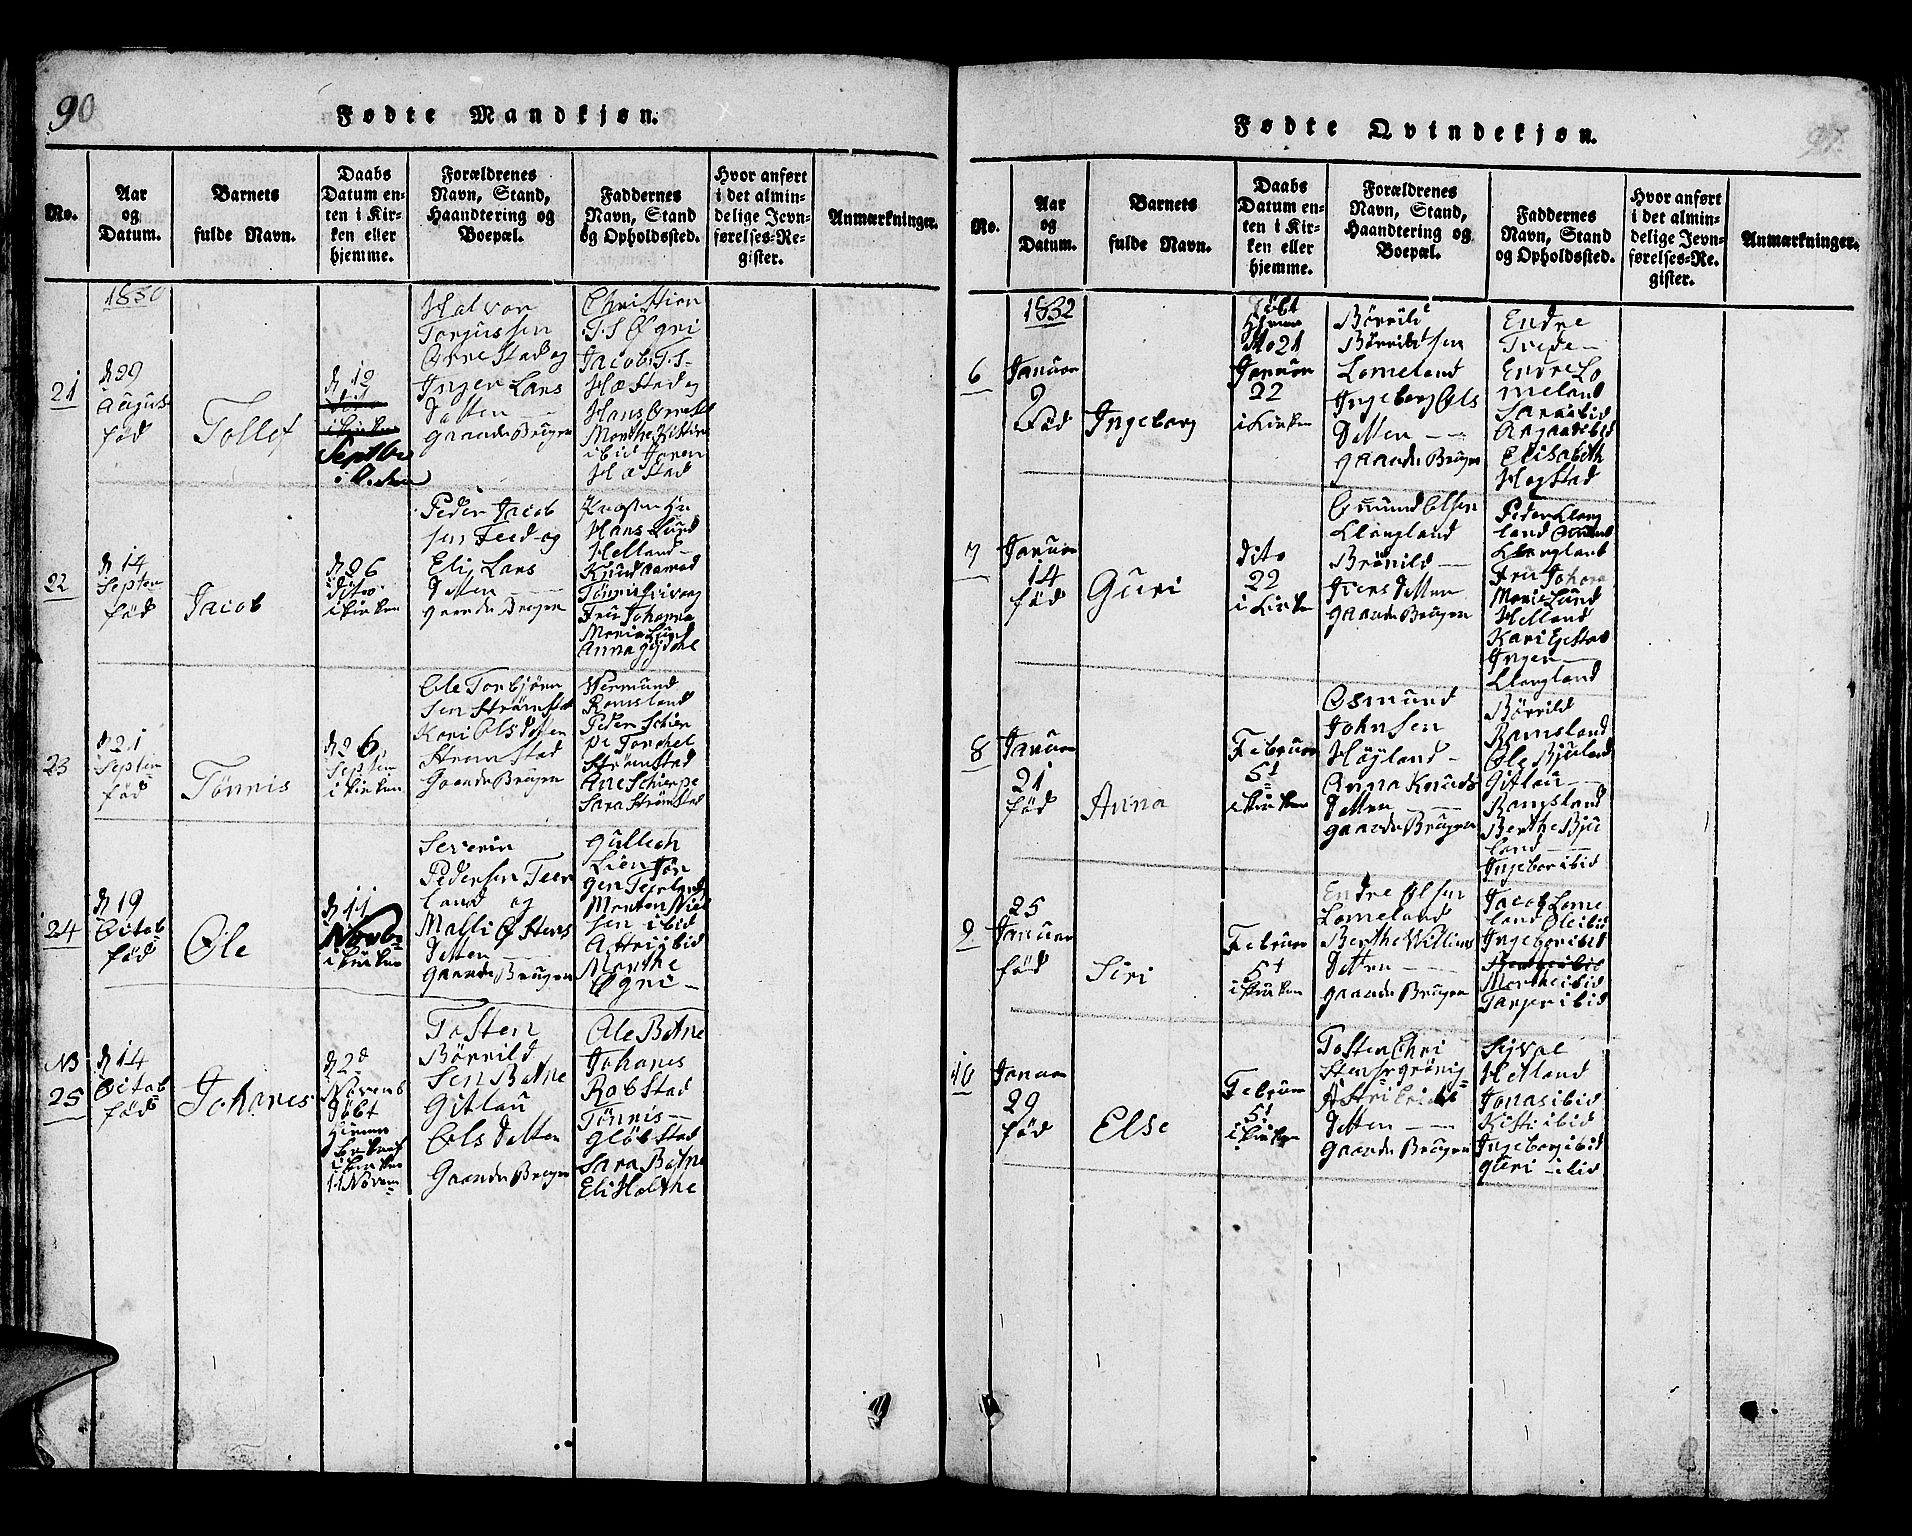 90
Fødte Mandkjøn.
No.
Aar
og
Datum.
Barnets
fulde Navn.
Daabs
Datum en-
ten i Kir-
ken eller
hjemme.
Forældrenes
Navn, Stand,
Haandtering og
Boepæl.
Faddernes
Navn, Stand
og Opholdssted.
Hvor anført
i det almin-
delige Jevn-
førelses-Re-
gister.
Anmærkninger.
1830
21
d 29
August
fød
Tollef
d 19
Septbr
Halvor
Torgussen
Ørrestad og
Inger Lars
Datter
Gaardr Bruger
Christien
Ø gri
Jacob T S
Hæstad og
Hans Ørrestad
Morthe
ibid Joren
Hæstad
22
d 14
Septem
fød
Jacob
d 26
dito
i Kirken
Peder Jacob
sen Feed og
Eli Lars
Datter
gaardr Bruger
Hans Lund
Helland
Knud
Tönnis
Fru Johanna
Maria Lund
Anna
23
d 21
Septem
fød
Tönnis
d 26
Septem
i Kirken
Ole Torbjörn
sen Strömstad
Kari Ols Datter
Strömstad
Gaardr Bruger
Wermund
Ramsland
Peder Schier
pe Torchel
Strömstad
Ane Schierpe
Sara Strömstad
24
d 19
Octob
fød
Ole
d 11
Novbr
i Kirken
Severin
Pedersen Feer
land og
Malli Østens
Datter
gaardr Bruger
Gullech
Lien Jör
gen Feerland
Morten Niel
sen ibid
Astri ibid
Morthe
Øgri
NB
25
d 14
Octob
fød
Johanes
d 2d
Novemb
Döbt
Hiemme
i Kirken
11 Novem
Tosten
Börrild
sen Botne
Gitlau
Ols Datter
Gaardr Bruger
Ole Botne
Johanes
Robstad
Tönnis
Glöbstad
Sara Botne
Eli Holthe
Fødte Qvindekjøn.
97.
No.
Aar
og
Datum.
Barnets
fulde Navn.
Daabs
Datum en-
ten i Kir-
ken eller
hjemme.
Forældrenes
Navn, Stand,
Haandtering og
Boepæl.
Faddernes
Navn, Stand
og Opholdssted.
Hvor anført
i det almin-
delige Jevn-
førelses-Re-
gister.
Anmærkninger.
1832
6
Januar
9
Fød
Ingeborg
Döbt
Hjemme
Januar
22
i Kirken
Börrild
Börrildsen
Lomeland
Ingeborg Ols
Datter
gaardr Bruger
Endre
Tvede
Endre Lo
meland
Sara ibid
Elisabeth
Hogstad
7
Januar
14
fød
Guri
dito
22
i Kirken
Omund Olsen
Llangland
Brönild
Ivers Datter
gaardr Bruger
Peder Llang
land Omund
Llangland
Fru Johana
Marie Lund
Helland
Kari Egestad
Inger
Llangland
8
Januar
21
fød
Anna
Februar
5t
i Kirken
Osmund
Johnsen
Höyland
Anna Knuds
Datter
gaardr Bruger
Börrild
Ramsland
Ole Bjuland
Gitlau
Ramsland
Berthe Bju
land
Ingebor ibid
9
25
Januar
fød
Siri
Februar
5t
i Kirken
Endre Olsen
Lomeland
Berthe Willums
Datter
gaardr Bruger
Jacob Lome
land Ole ibid
Ingebor ibid
Morthe ibid
Tarjer ibid
10
Januar
29
fød
Else
Februar
5t
i Kirken
Tosten Chri
stensr
Astri
Datter
gaardr Bruger
Sivol
Helland
Jonas ibid
Kisti ibid
Ingeborg ibid
Guri ibid